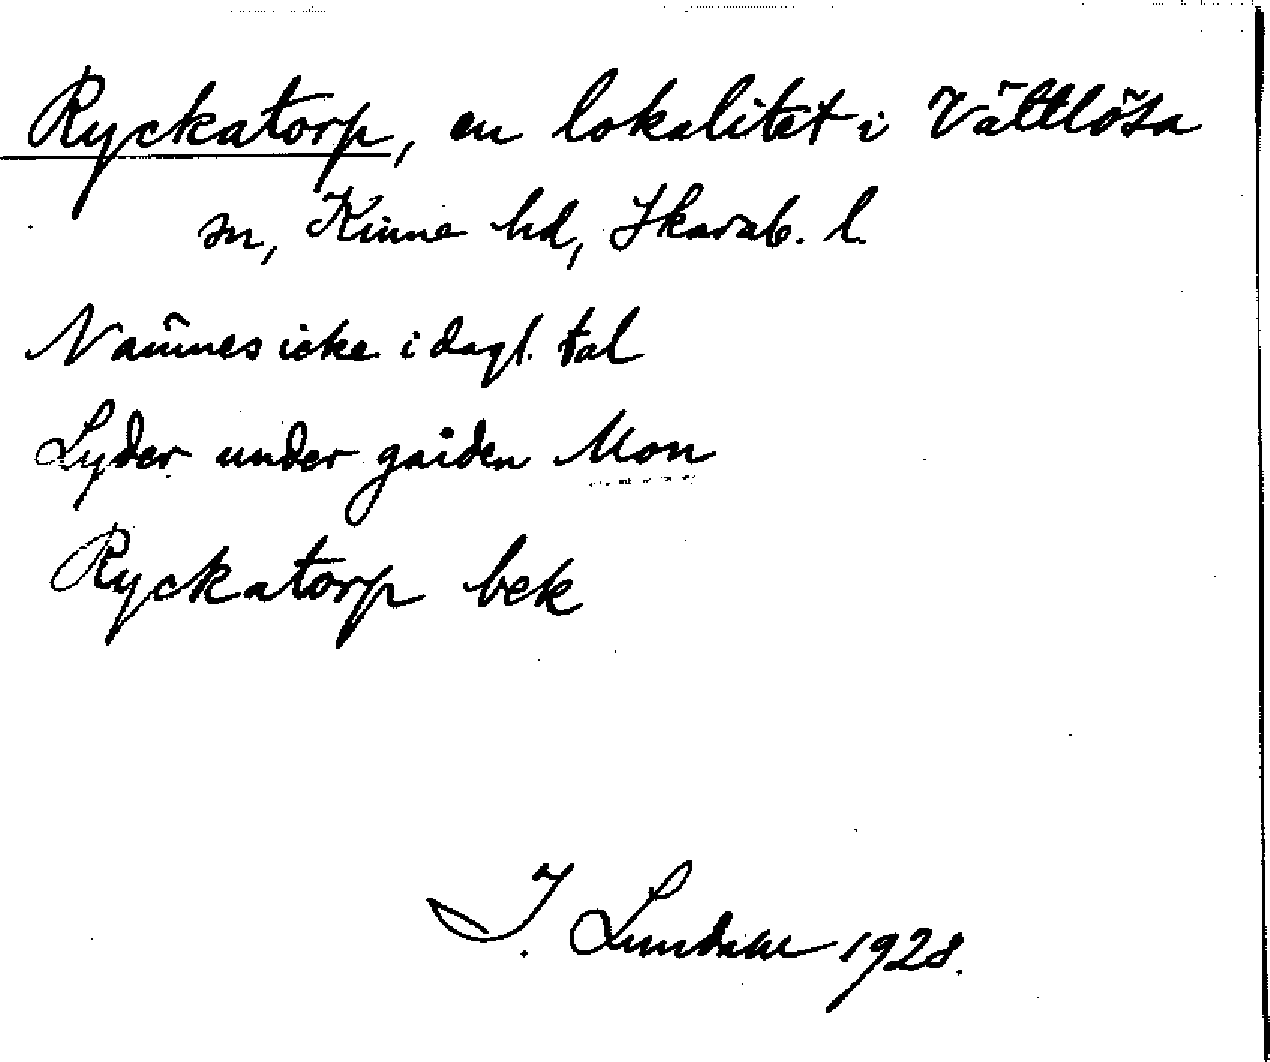 Ryckatorp, en lokalitet i Vättlösa
sn, Kinne hd, Skarab. l.
Nämnes icke i dagl. tal
Lyder under gården Mon
Ryckatorp bek
I. Lundahl 1928.